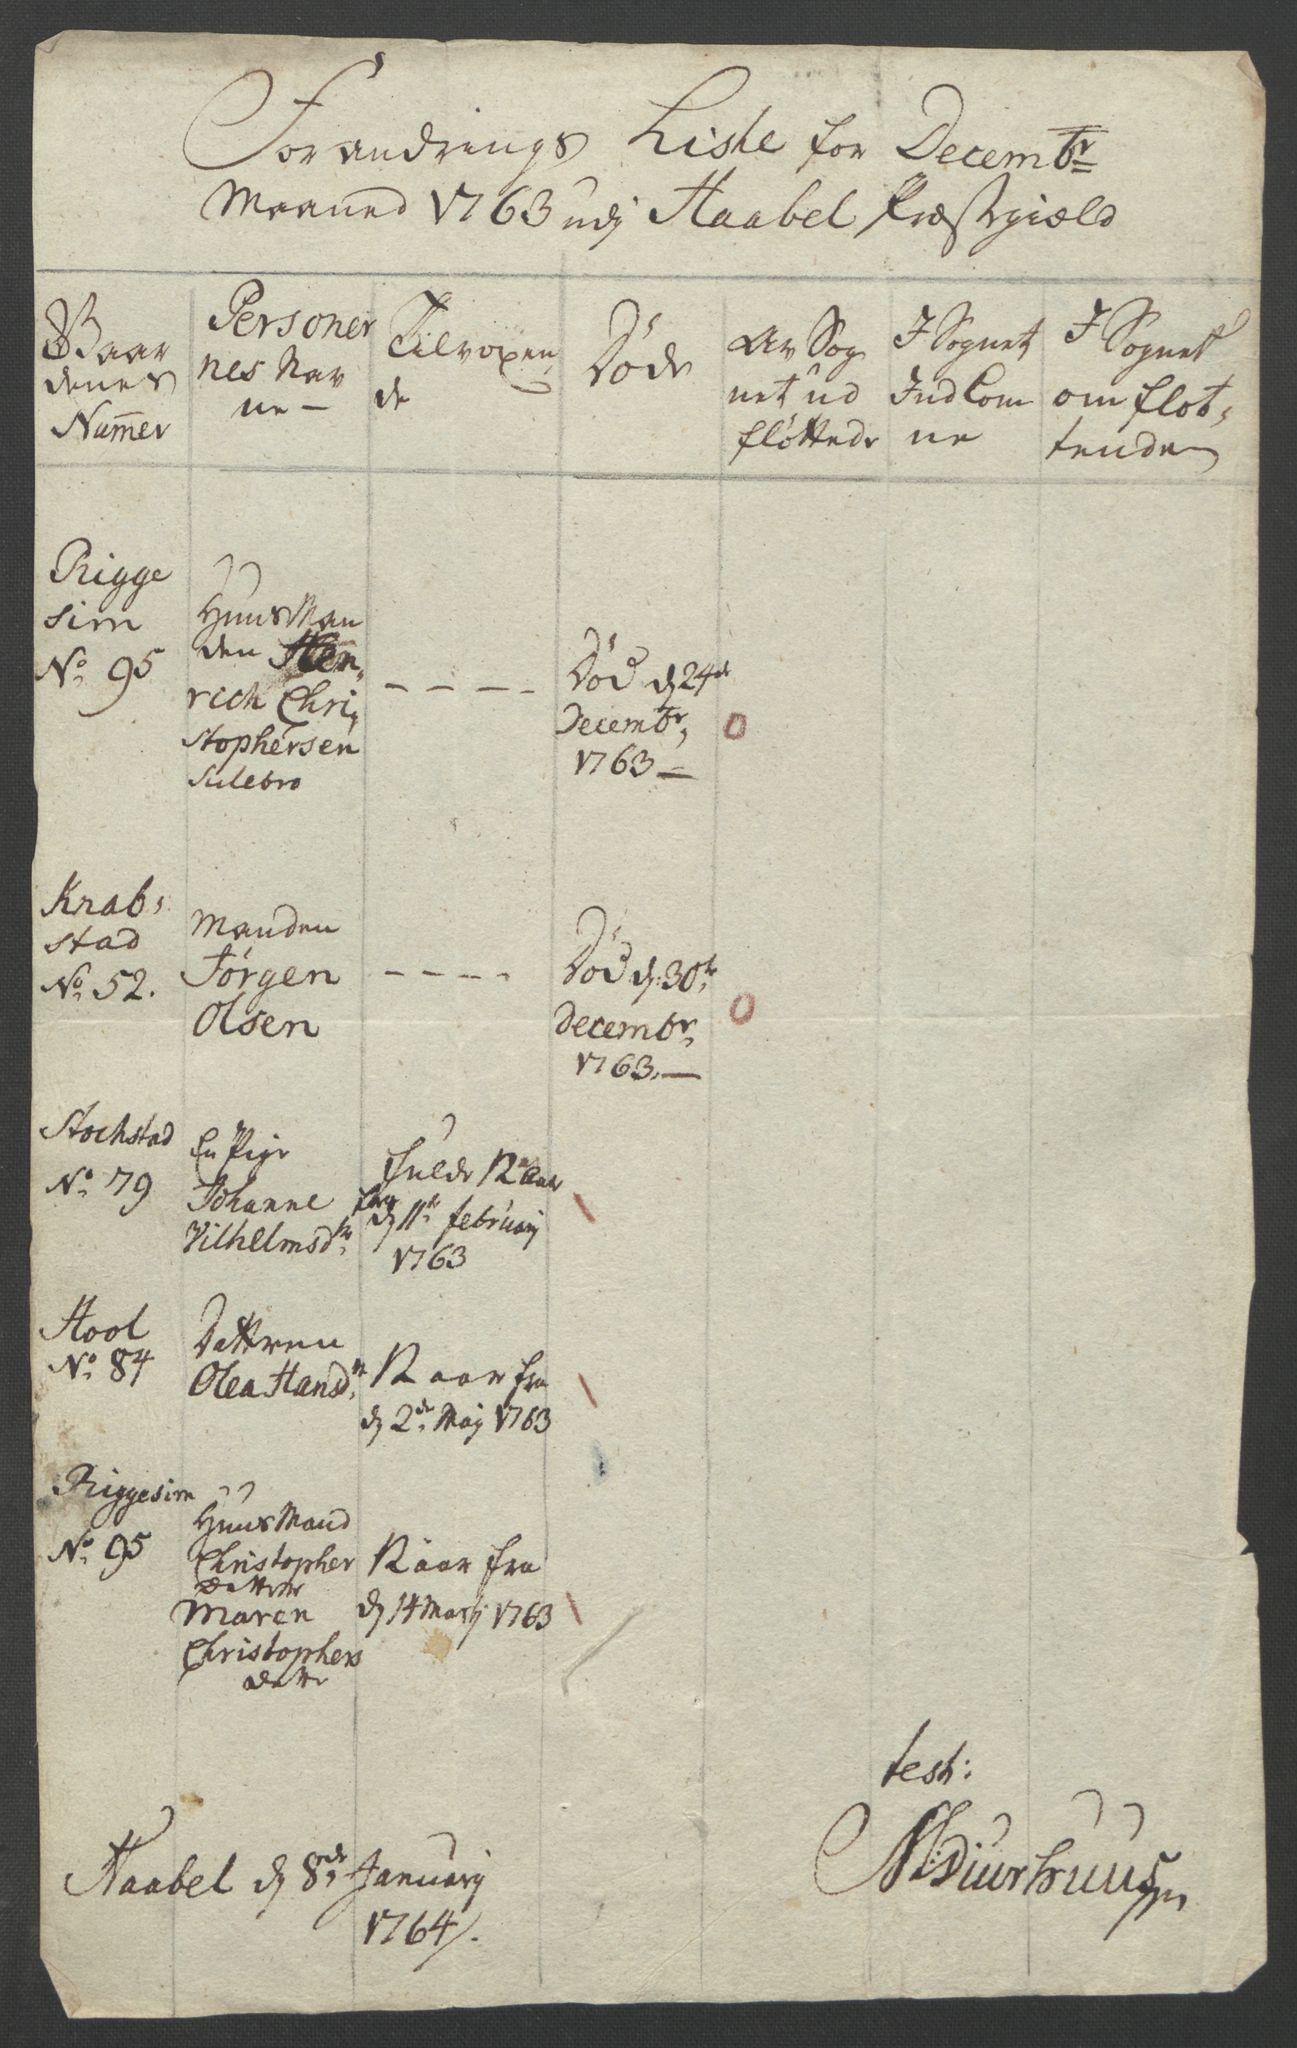 Forandrings Liste for Decembr
Maaned 1763 udj Haabel Præstegiæld
Gaar
denes
Numer
Personer
nes Nav
ne —
Tilvoxen
de
Døde
Av Sog
net ud
fløttede
I Sognet
Indkom
ne
I Sognet
om fløt,
tende
Rigge
sim
No 95
Huus Man
den Hen,
rich Chri,
stophersen
Sulebro
— — — —
Død d 24de
Decembr,
1763 —
0
Knab,
stad
No 52.
Manden
Jørgen
Olsen
— — — —
Død d: 30te
Decembr,
1763. —
0
Stochstad
No 79
En Pige
Johanne
Vilhelmsdtr
fulde 12 aar
fra
d 11te februarj
1763
Hool
No 84
Dattren
Olea Hansdtr
12 aar fra
d 2de Maij 1763
Riggesim
No 95
Huus Mand
Christopher
Datter
Maren
Christophers
datter
12 aar fra
d 14 Martj 1763
test:
Haabel d 8de Januarij
1764/.